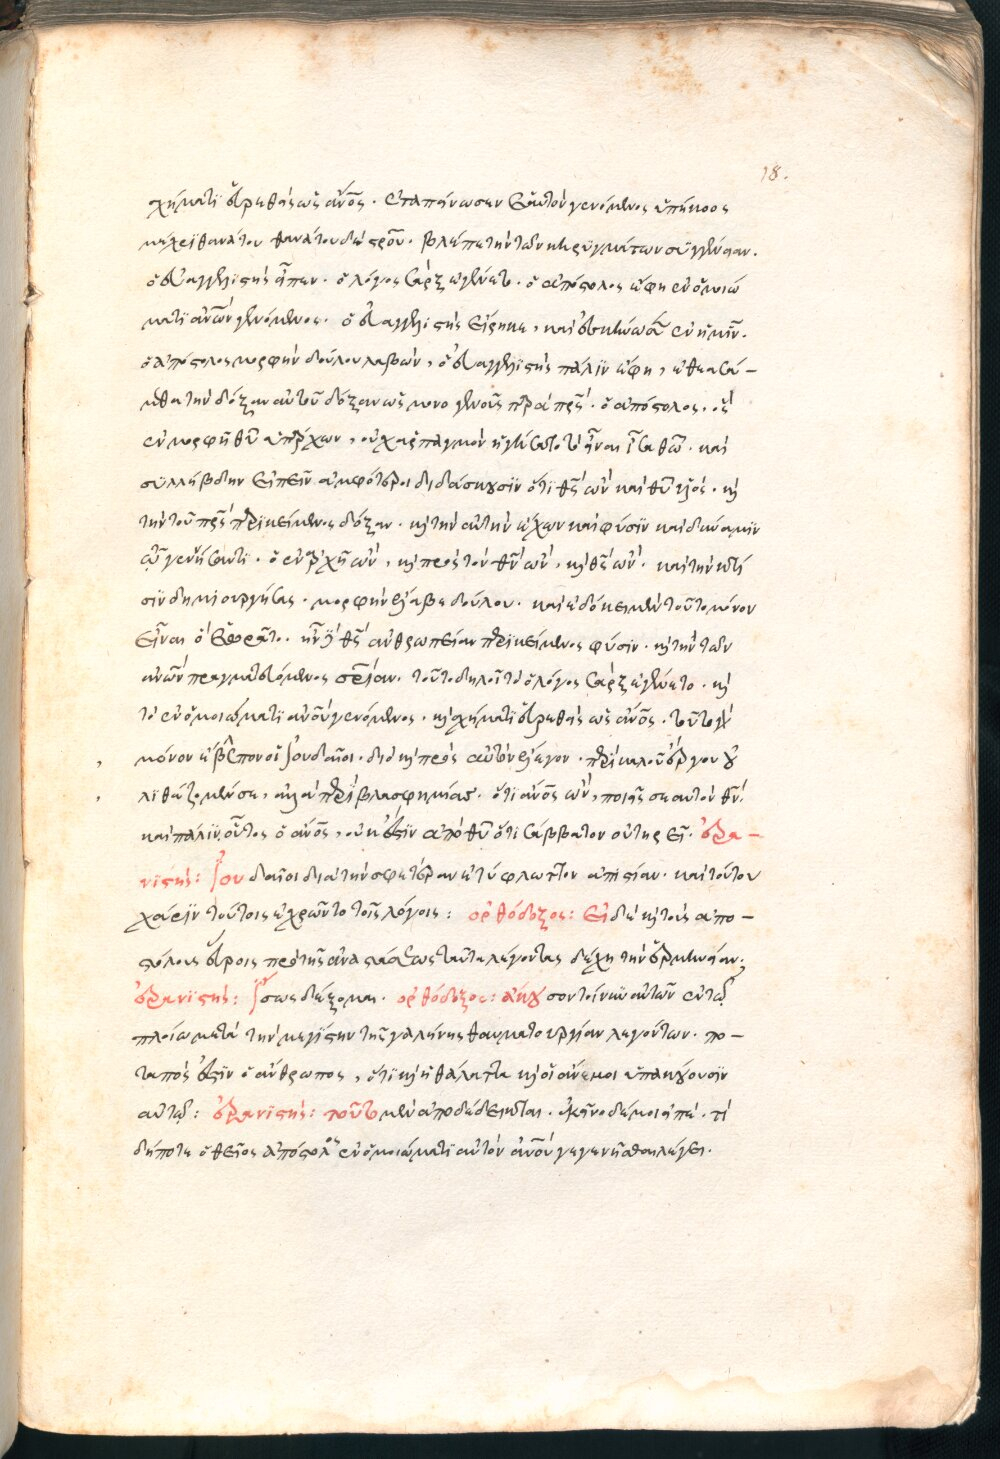 18.
χήματι εὑρεθεὶς ὡς ἄνος. ἐταπείνωσεν ἑαυτὸν γενόμενος ὑπήκοος
μέχρι θανάτου θανάτου δὲ σροῦ. βλέπε τὴν τῶν κηρυγμάτων συγγένειαν.
ὁ εὐαγγελιστὴς εἶπεν. ὁ λόγος σὰρξ ἐγένετο. ὁ ἀπόστολος ἔφη ἐν ὁμοιώ
ματι ἀνῶν γενόμενος. ὁ εὐαγγελιστὴς εἴρηκε, καὶ ἐσκήνωσεν ἐν ἡμῖν.
ὁ ἀπόστολος μορφὴν δούλου λαβών, ὁ εὐαγγελιστὴς πάλιν ἔφη, ἐθεασά-
μεθα τὴν δόξαν αὐτοῦ δόξαν ὡς μονογενοῦς παρὰ πρς. ὁ ἀπόστολος, ὃς
ἐν μορφῆ θυ ὑπάρχων, οὐχ ἁρπαγμὸν ἡγήσατο τὸ εἶναι ἴσα θω. καὶ
συλλήβδην εἰπεῖν ἀμφότεροι διδάσκουσιν ὅτι θς ὢν καὶ θυ υἱὸς. καὶ
τὴν τοῦ πρς περικείμενος δόξαν. καὶ τὴν αὐτὴν ἔχων καὶ φύσιν καὶ δύναμιν
τῶ γεννήσαντι. ὁ ἐν ἀρχῆ ὢν, καὶ πρὸς τὸν θν ὢν, καὶ θς ὢν. καὶ τὴν κτί
σιν δημιουργήσας. μορφὴν ἔλαβε δούλου. καὶ ἐδόκει μὲν τοῦτο μόνον
εἶναι ὃ ἑωρᾶτο. ἦν δὲ θς ἀνθρωπείαν περικείμενος φύσιν. καὶ τὴν τῶν
ἀνῶν πραγματευόμενος σρίαν. τοῦτο δηλοῖ τὸ ὁ λόγος σὰρξ ἐγένετο. καὶ
τὸ ἐν ὁμοιώματι ἀνου γενόμενος. καὶ σχήματι εὑρεθεὶς ὡς ἄνος. τοῦτο γὰρ
μόνον ἔβλεπον οἱ ἰουδαῖοι. διὸ καὶ πρὸς αὐτὸν ἔλεγον. περὶ καλοῦ ἔργου οὐ
λιθάζομέν σε, ἀλλὰ περὶ βλασφημίας. ὅτι ἄνος ὢν, ποιεῖς σεαυτὸν θν.
καὶ πάλιν οὗτος ὁ ἄνος, οὐκ ἔστιν ἀπὸ θυ ὅτι σάββατον οὐ τηρεῖ. ἐρα-
νιστής: Ἰουδαῖοι διὰ τὴν σφετέραν ἐτύφλωττον ἀπιστίαν. καὶ τούτου
χάριν τούτοις ἐχρῶντο τοῖς λόγοις: ὀρθόδοξος: Εἰ δὲ καὶ τοὺς ἀπο-
στόλους εὕροις πρὸ τῆς ἀναστάσεως ταῦτα λέγοντας δέχη τὴν ἑρμηνείαν;
ἐρανιστής: Ἴσως δέξομαι. ὀρθόδοξος: ἄκουσον τοίνυν αὐτῶν ἐν τῶ
πλοίω μετὰ τὴν μεγίστην τῆς γαλήνης θαυματουργίαν λεγόντων. πο-
ταπός ἐστιν ὁ ἄνθρωπος, ὅτι καὶ ἡ θάλαττα καὶ οἱ ἄνεμοι ὑπακούουσιν
αὐτῶ: ἐρανιστής: τοῦτο μὲν ἀποδέδεικται. ἐκεῖνο δέ μοι εἰπὲ. τί
δήποτε ὁ θεῖος ἀπόστολος ἐν ὁμοιώματι αὐτὸν ἀνου γεγενῆσθαι λέγει.